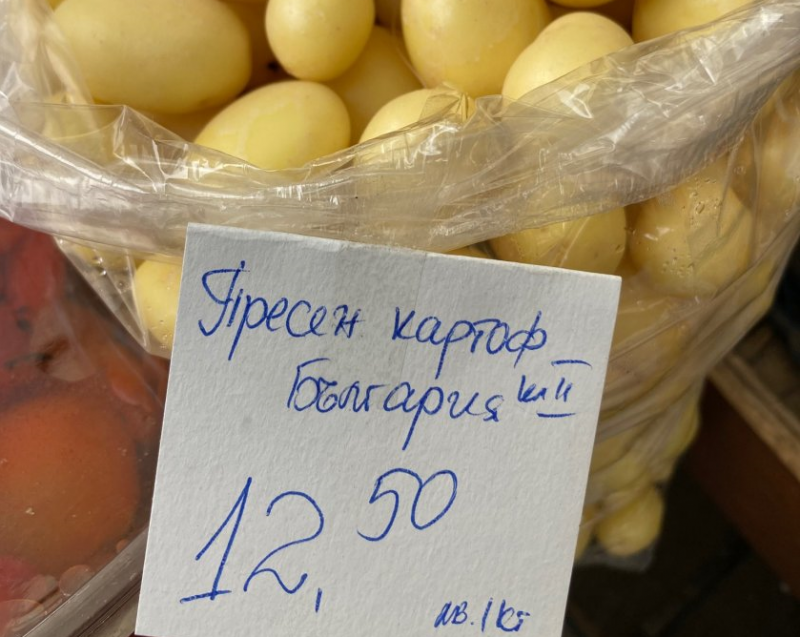 Пресен картоф
България кл II
12,50
лв./кг